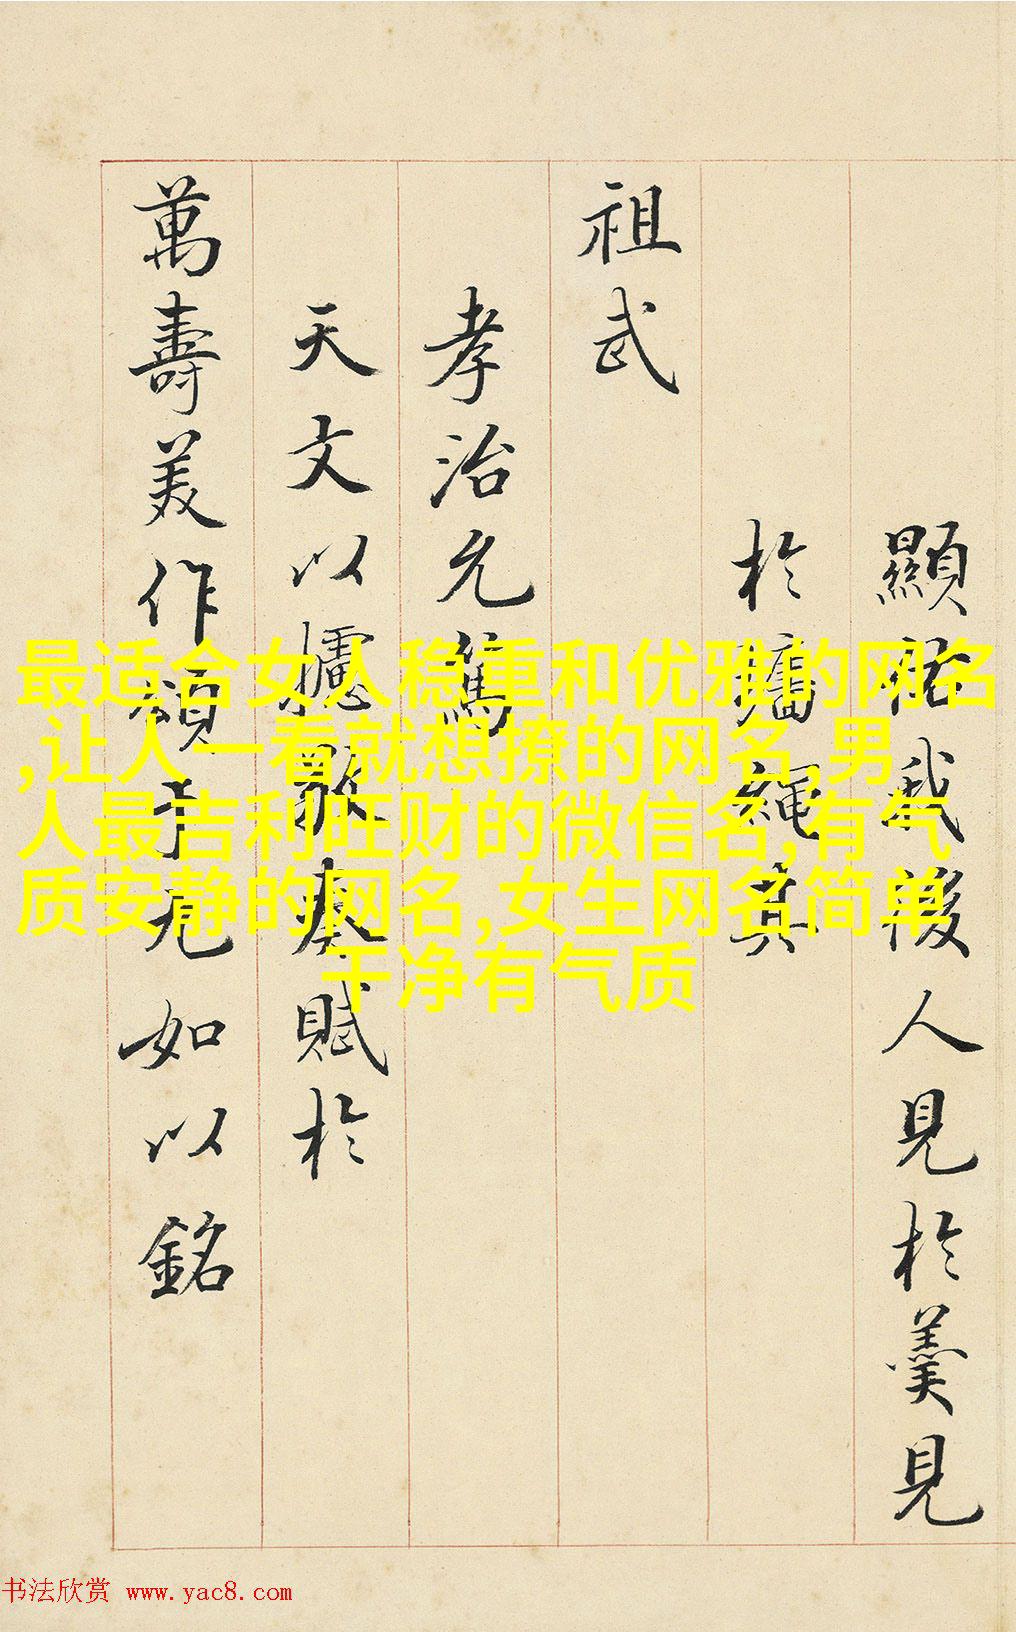 顯我後人見於羹見
於牆繩其
祖武
孝治允篤
天文以攄歌賦於
萬壽美作頌如以銘
最适合女人稳重和优雅的网名
,让人一看就想撩的网名,男
人最吉利旺财的微信名,有气
质安静的网名,女生网名简单
干净有气质
书法欣赏 www.yac8.com